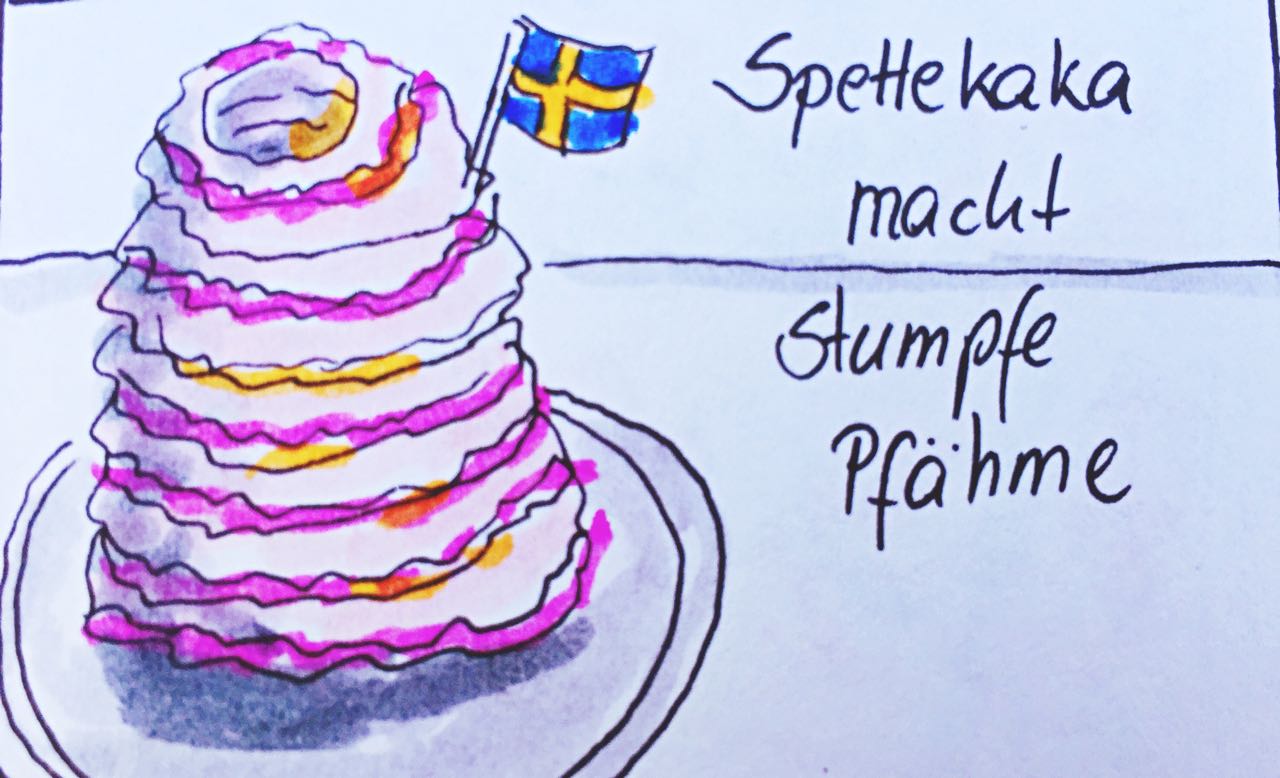 Spettekaka
macht
Stumpfe
Pfähme